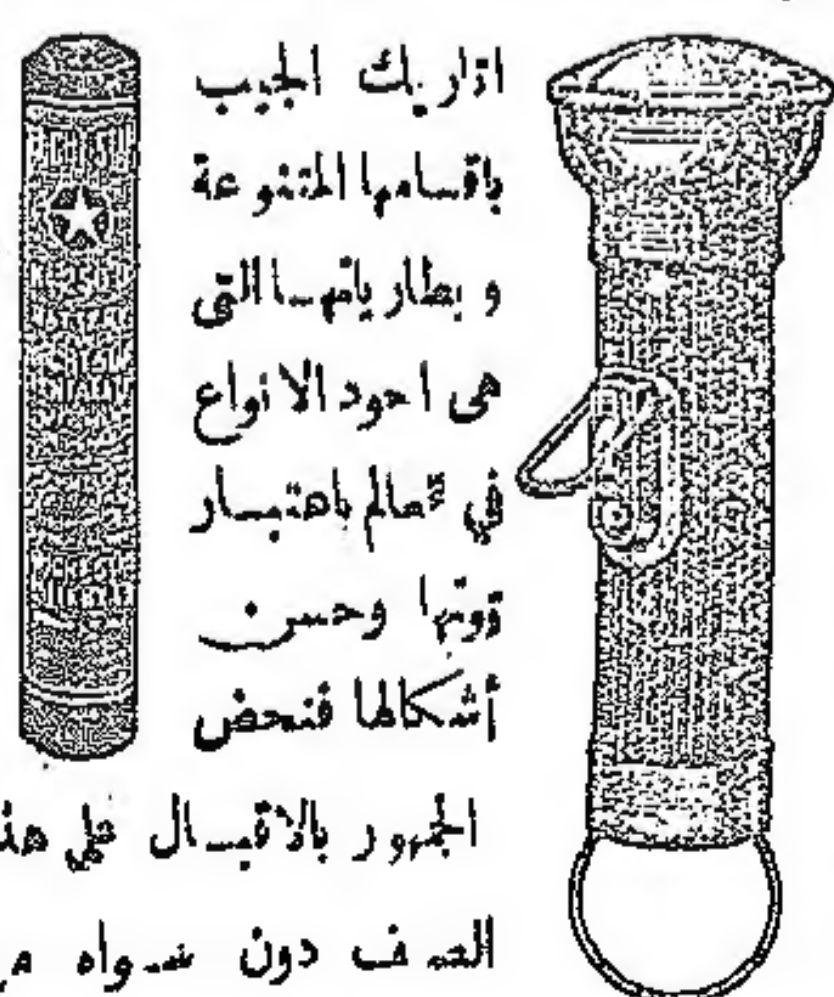 انار بك الجيب
باقسامها المتنوعة
و بطارياتها التى
هى اجود الانواع
في العالم باعتبار
قوتها وحسن
أشكالها فنحض
الجمهور بالاقبال على هذ
الصنف دون سواه م